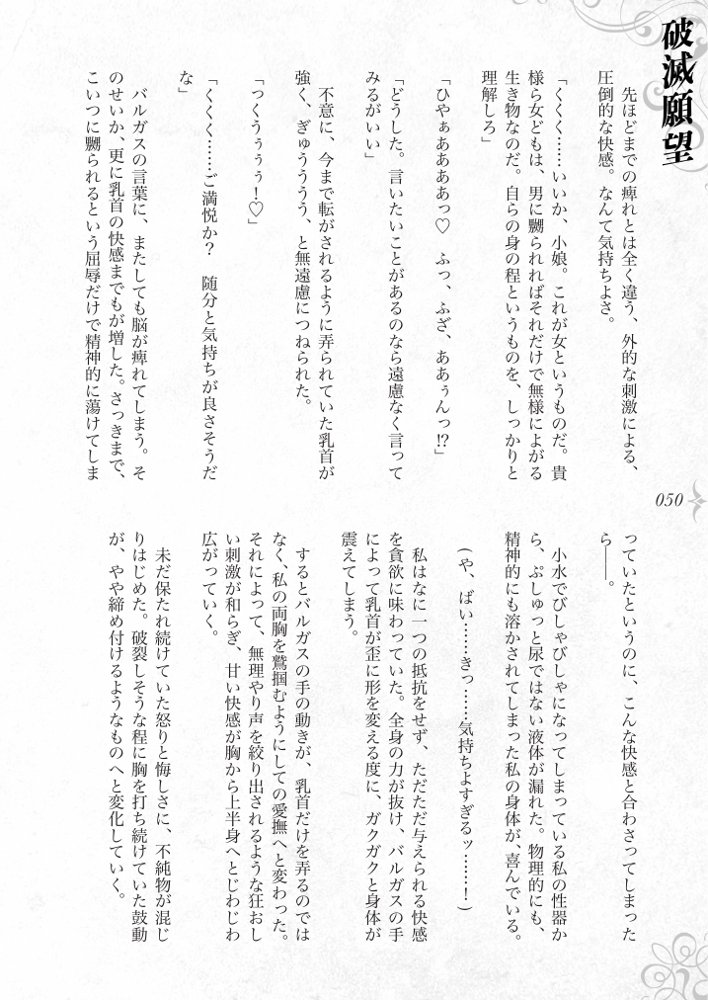 破滅願望
先ほどまでの痺れとは全く違う、外的な刺激による、
圧倒的な快感。なんて気持ちよさ。
「くくく……いいか、小娘。これが女というものだ。貴
様ら女どもは、男に嬲られればそれだけで無様によがる
生き物なのだ。自らの身の程というものを、しっかりと
理解しろ」
「ひやぁああああっ♡　ふっ、ふざ、ああぅんっ!?」
「どうした。言いたいことがあるのなら遠慮なく言って
みるがいい」
不意に、今まで転がされるように弄られていた乳首が
強く、ぎゅうううう、と無遠慮につねられた。
「っくうぅぅぅ！♡」
「くくく……ご満悦か？　随分と気持ちが良さそうだ
な」
バルガスの言葉に、またしても脳が痺れてしまう。そ
のせいか、更に乳首の快感までもが増した。さっきまで、
こいつに嬲られるという屈辱だけで精神的に蕩けてしま
050
っていたというのに、こんな快感と合わさってしまった
ら――。
小水でびしゃびしゃになってしまっている私の性器か
ら、ぷしゅっと尿ではない液体が漏れた。物理的にも、
精神的にも溶かされてしまった私の身体が、喜んでいる。
(や、ばい……きっ……気持ちよすぎるッ……！)
私はなに一つの抵抗をせず、ただただ与えられる快感
を貪欲に味わっていた。全身の力が抜け、バルガスの手
によって乳首が歪に形を変える度に、ガクガクと身体が
震えてしまう。
するとバルガスの手の動きが、乳首だけを弄るのでは
なく、私の両胸を鷲掴むようにしての愛撫へと変わった。
それによって、無理やり声を絞り出されるような狂おし
い刺激が和らぎ、甘い快感が胸から上半身へとじわじわ
広がっていく。
未だ保たれ続けていた怒りと悔しさに、不純物が混じ
りはじめた。破裂しそうな程に胸を打ち続けていた鼓動
が、やや締め付けるようなものへと変化していく。